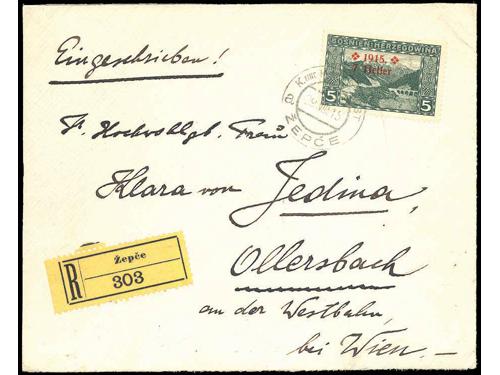 Eingeschrieben!
BOSNIEN-HERZEGOWINA
1915.
7 Heller
5 5
ŽEPČE
Hochwohlgb. Frau
Klara von Jedina,
Ollersbach
an der Westbahn,
bei Wien.
R
Žepče
303